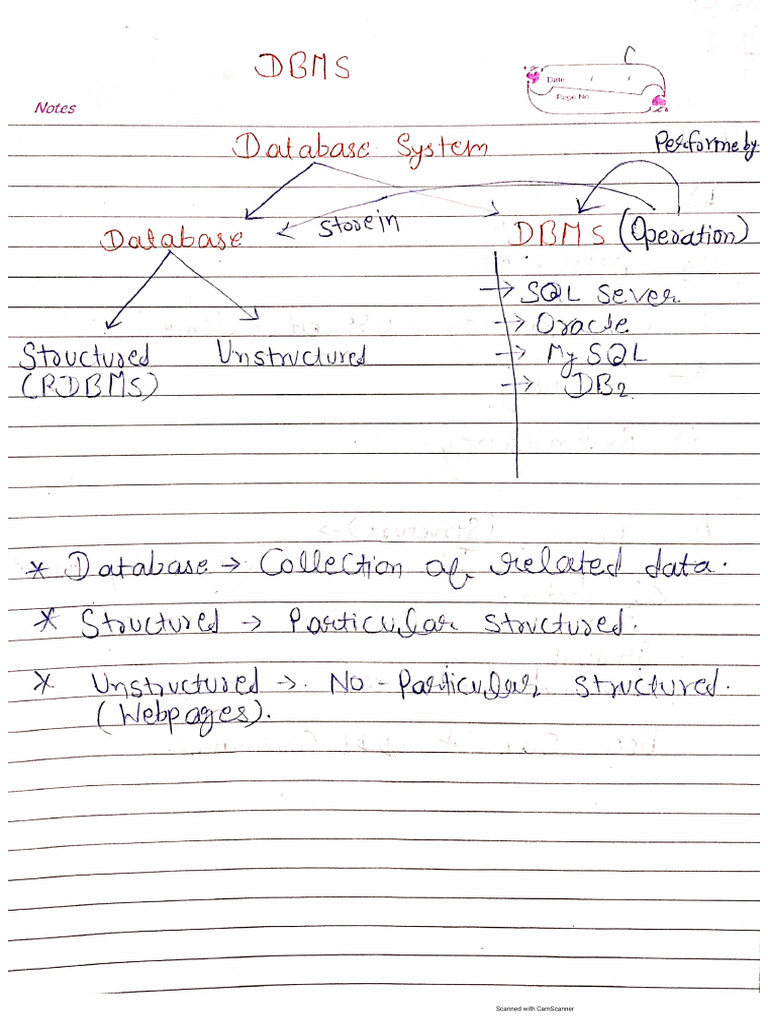 DBMS
Date / /
Page No.
Notes
Database System
Performe by
Store in
Database
DBMS (Operation)
→ SQL Sever
→ Oracle
Structured Unstructured
→ MySQL
(RDBMS)
→ DB2
* Database → Collection of related data.
* Structured → Particular structured.
* Unstructured → No-Particular structured.
(Webpages).
Scanned with CamScanner